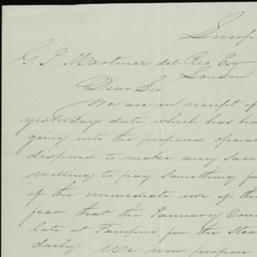 Liverp
G. J. Martinez del Rio Esq
London
Dear Sir
We are in receipt of
yesterdays date which has
going into the proposed opera
disposed to make any
willing to pay something fo
of the immediate use of the
year that the January Cou
late at Tampico for the Stea
daily. We now propose